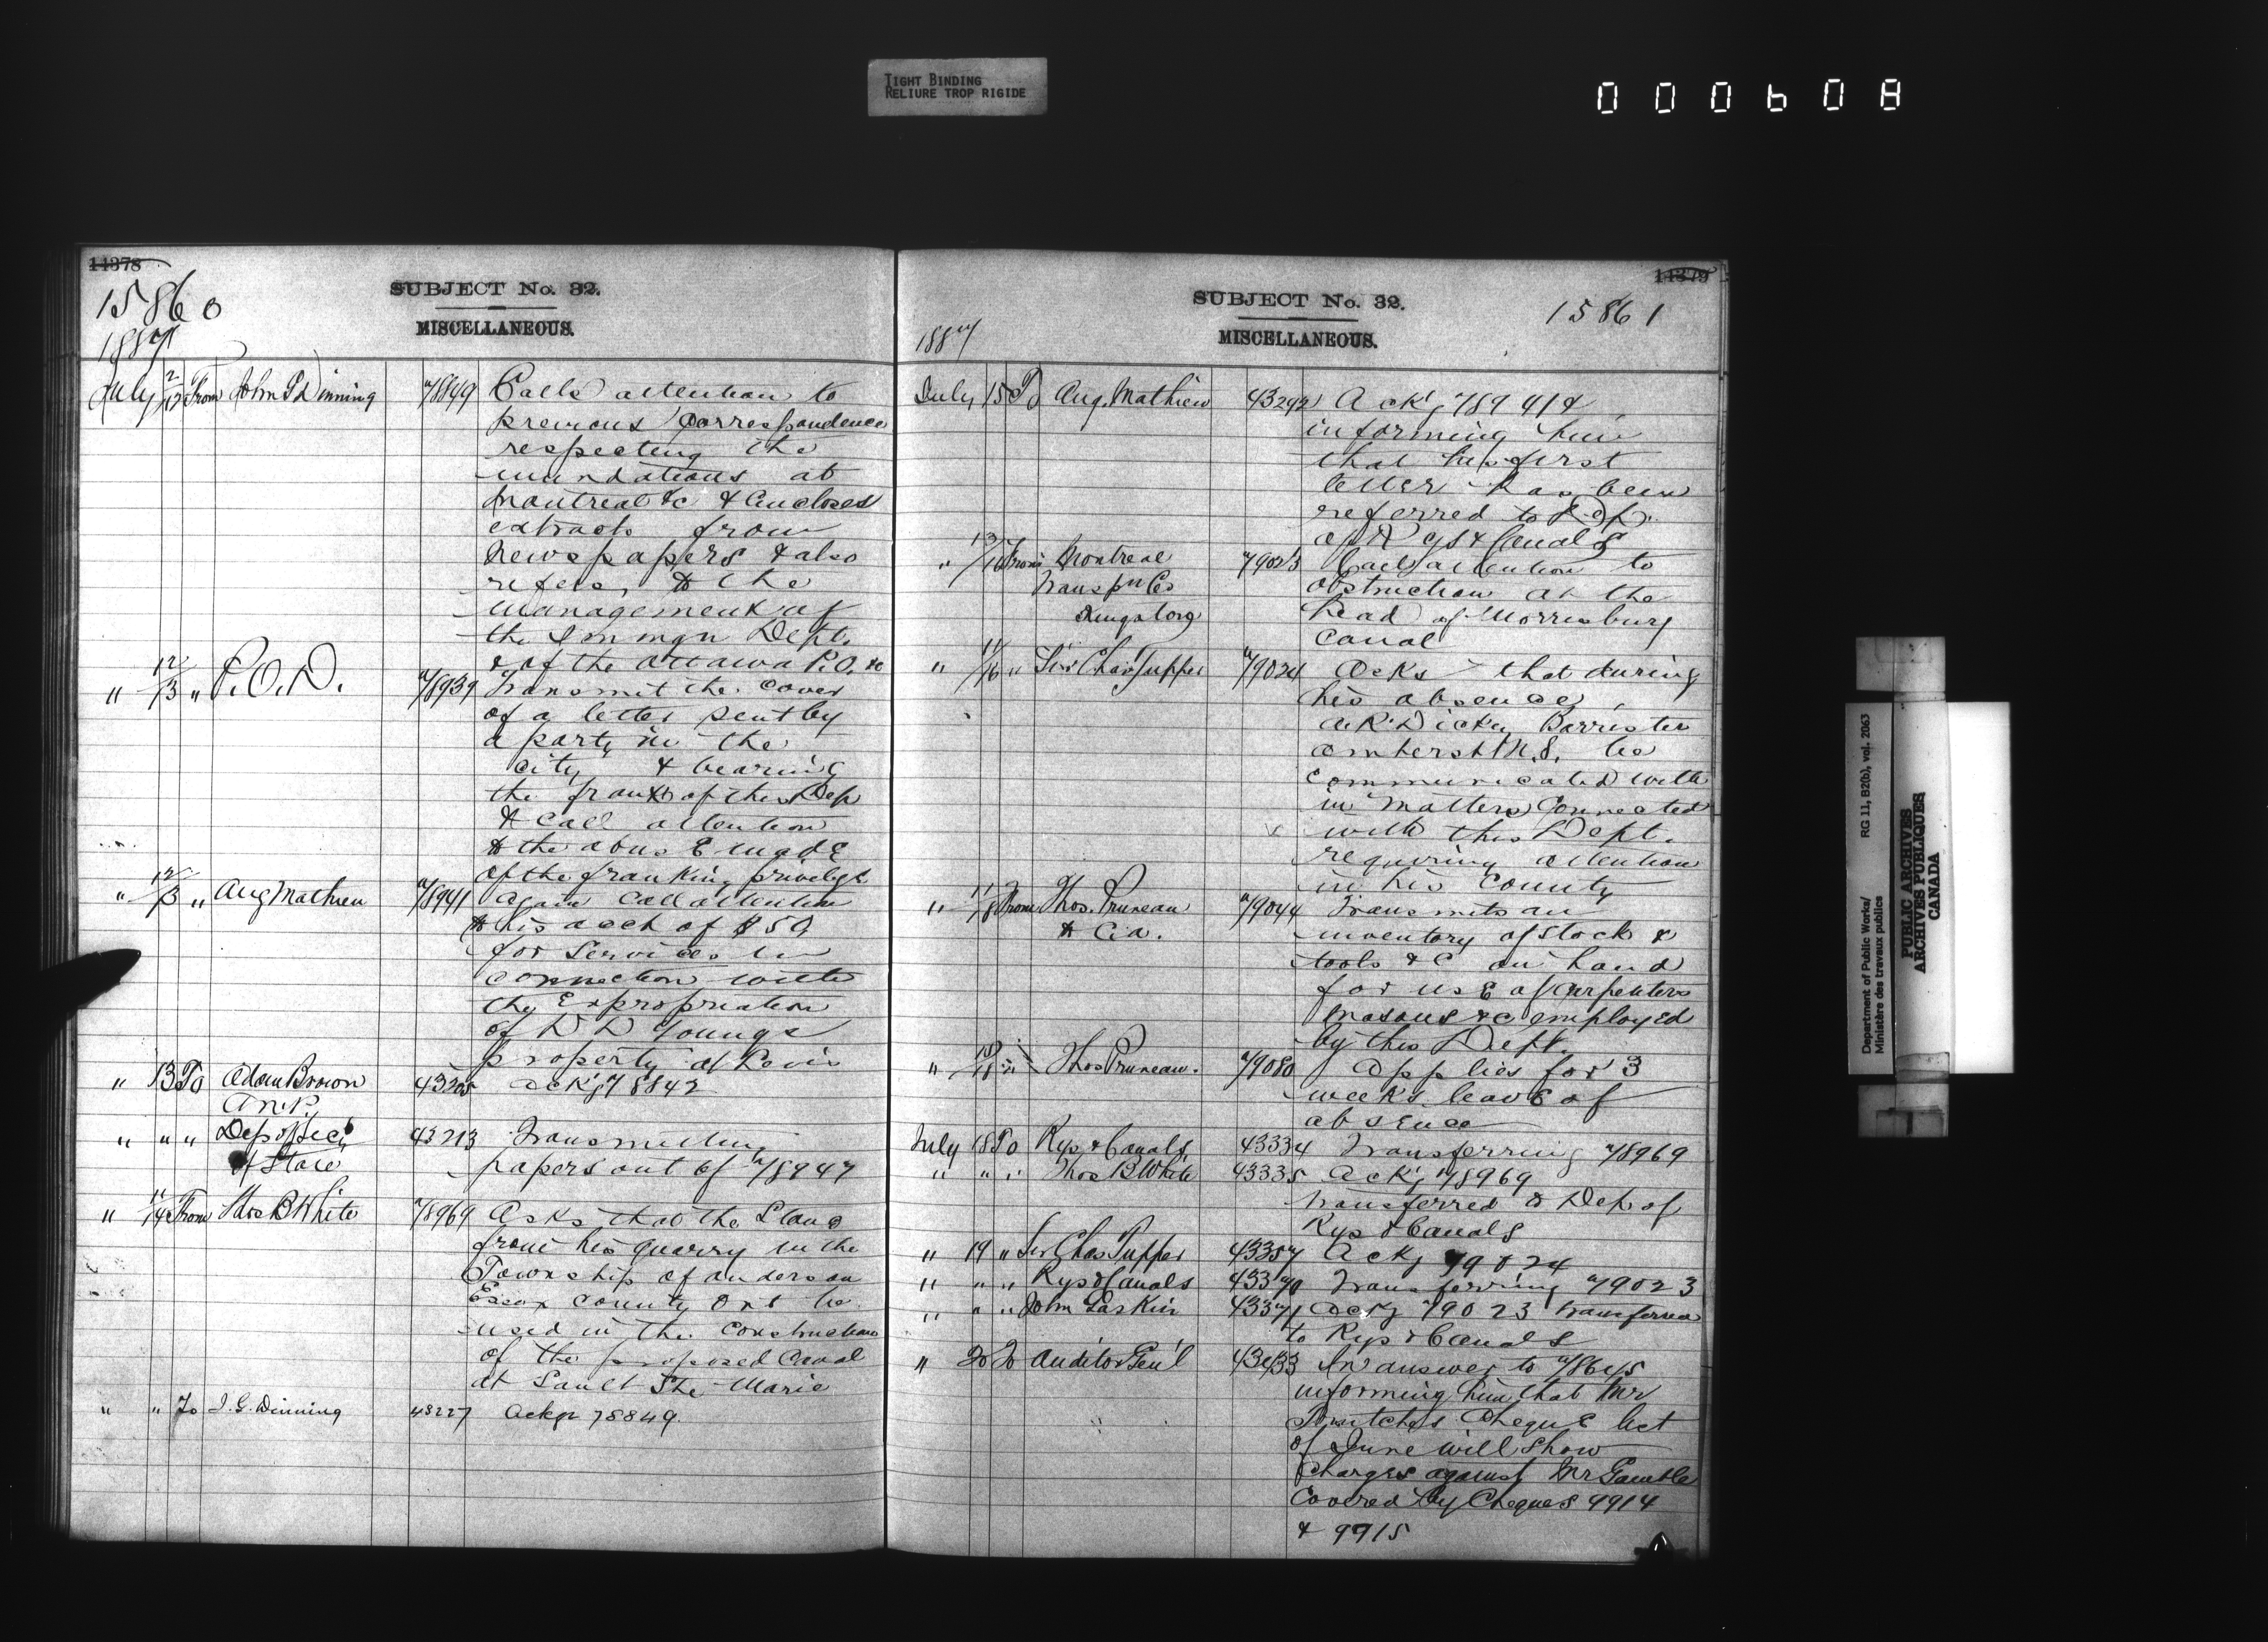 TIGHT BINDING
RELIURE TROP RIGIDE
000608
14378
15860
SUBJECT No. 32.
1887
MISCELLANEOUS.
July 2/12 From John G Dinning 78849 Calls attention to
previous correspondence
respecting the
inundations at
Montreal &c & encloses
extracts from
Newspapers & also
refers to the
management of
the Immgn Dept.
& of the Ottawa P.O. &c
" 12/13 " P.O.D. 78939 Transmit the cover
of a letter sent by
a party in the
city & bearing
the frank of this Dep
& call attention
to the abuse made
of the franking privilege
" 12/13 " Aug Mathieu 78941 Again call attention
to his acct of $50
for services in
connection with
the Expropriation
of D D Youngs
property at Levis
" 13 To Adam Brown 43205 Ackg 78842
M.P.
" " " Dep of Secy 43213 Transmitting
of State papers out of 78947
" 11/14 From Thos B White 78969 Asks that the Stone
from his quarry in the
Township of Anderson
Essex County Ont be
used in the construction
of the proposed Canal
at Sault Ste Marie
" " To J. G. Dinning 43227 Ackg 78849.
14379
SUBJECT No. 32.
15861
1887
MISCELLANEOUS.
July 15 To Aug. Mathieu 43292 Ackg 78941 &
informing him
that his first
letter has been
referred to Dep.
of Rys & Canals
" 13/16 From Montreal 79023 Calls attention to
Transpn Co obstruction at the
Kingston head of Morrisburg
Canal
" 11/16 " Sir Chas Tupper 79024 Asks that during
his absence
A.R. Dickey Barrister
Amherst N.S. be
communicated with
in matters connected
with this Dept.
requiring attention
in his County
" /18 From Thos. Pruneau 79044 Transmits an
& Cie. inventory of stock &
tools &c on hand
for use of Carpenters
Masons &c employed
by this Dept.
" 18/18 " Thos Pruneau. 79080 Applies for 3
weeks leave of
absence
July 18 To Rys & Canals, 43334 Transferring 78969
" " " Thos B White 43335 Ackg 78969
transferred to Dep of
Rys & Canals
" 19 " Sir Chas Tupper 43357 Ackg 79024
" " " Rys & Canals 43370 Transferring 79023
" " " John Gaskin 43371 Ackg 79023 transferred
to Rys & Canals
" 20 To Auditor Gen'l 43433 In answer to 78645
informing him that Mr
cheque list
of June will show
charges against Mr Gamble
covered by Cheques 9914
& 9915
Department of Public Works/ RG 11, B2(b), vol. 2063
Ministère des travaux publics
PUBLIC ARCHIVES
ARCHIVES PUBLIQUES
CANADA